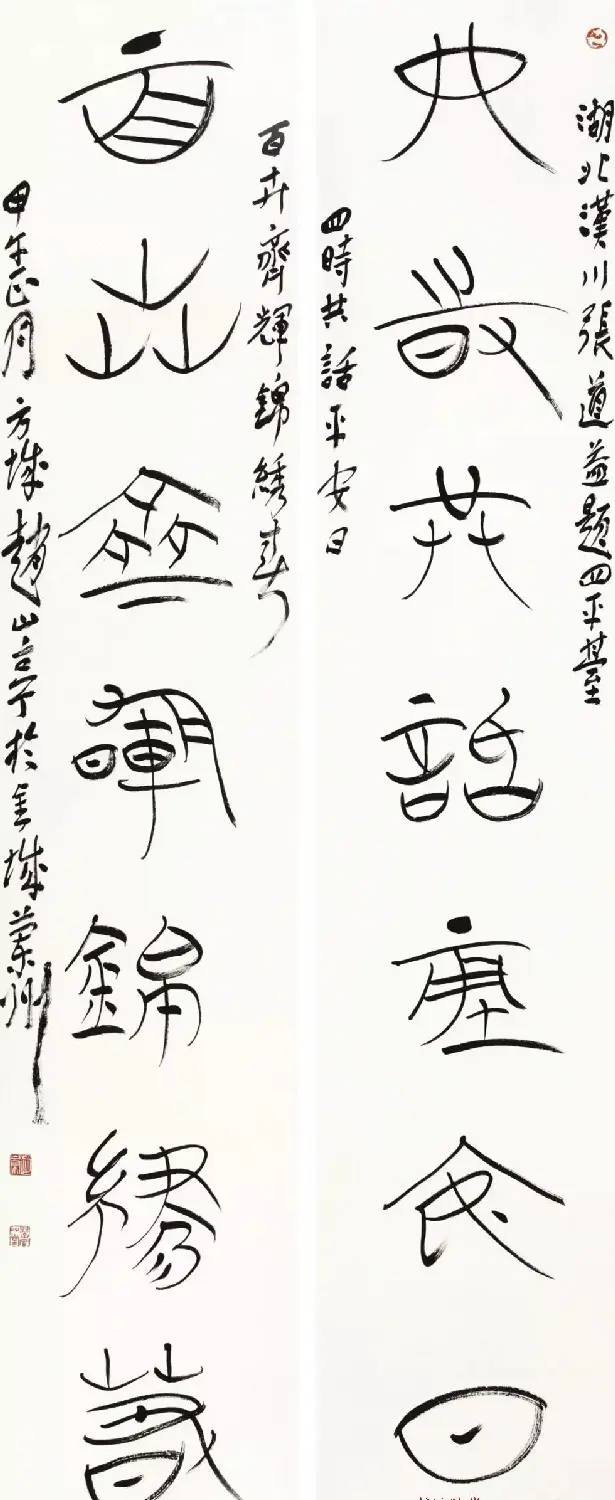 湖北漢川張道益題四平臺
四時共話平安日
四時共話平安日
百卉齊輝錦綉春
百卉齊輝錦綉春
甲午正月方城趙山亭於金城蘭州